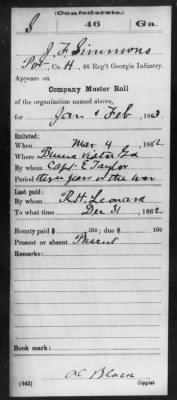 (Confederate.)
S 46 Ga.
J. F. Simmons
Pvt, Co. H, 46 Reg't Georgia Infantry.
Appears on
Company Muster Roll
of the organization named above,
for Jan & Feb, 1863.
Enlisted:
When Mar 4, 1862
Where Buena Vista Ga
By whom Capt. E. Taylor
Period three years or the war
Last paid:
By whom R. H. Leonard
To what time Dec 31, 1862
Bounty paid $ 100; due $ 100
Present or absent Present
Remarks:
Book mark:
A C Black
(642) Copyist.